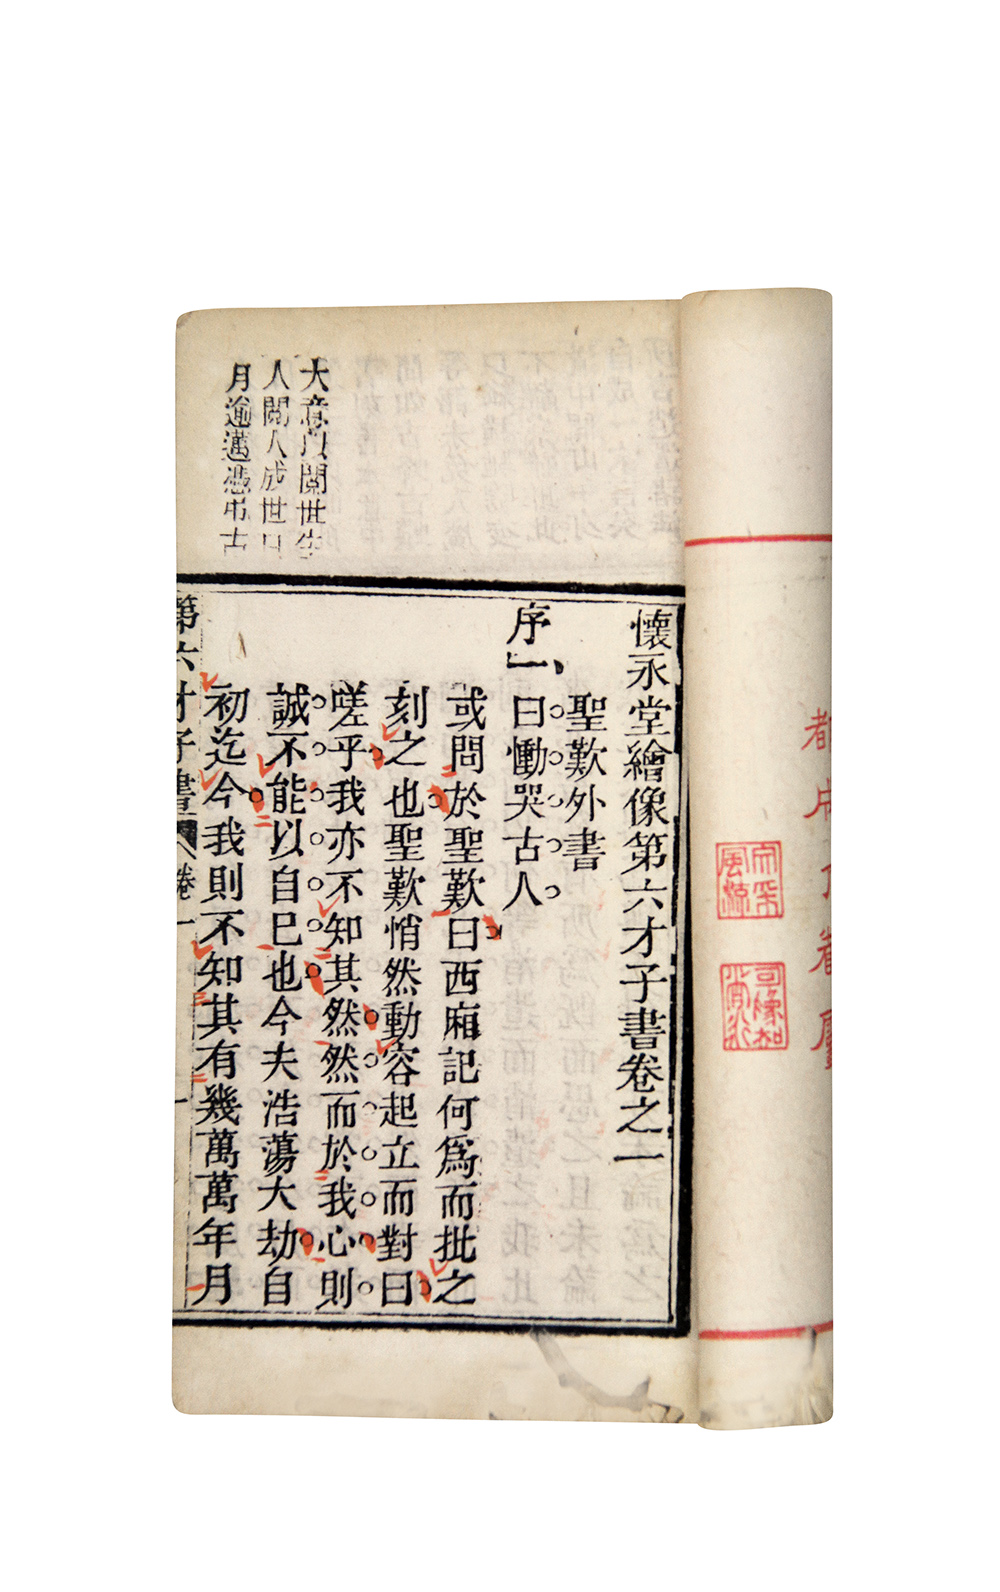 懷永堂繪像第六才子書卷之一
聖歎外書
序一、曰慟哭古人
或問於聖歎曰西廂記何為而批之
刻之也聖歎悄然動容起立而對曰
嗟乎我亦不知其然然而於我心則
誠不能以自已也今夫浩蕩大劫自
初迄今我則不知其有幾萬萬年月
第六才子書 卷一
一
大意以閱世生
人閱人成世日
月逾邁憑弔古